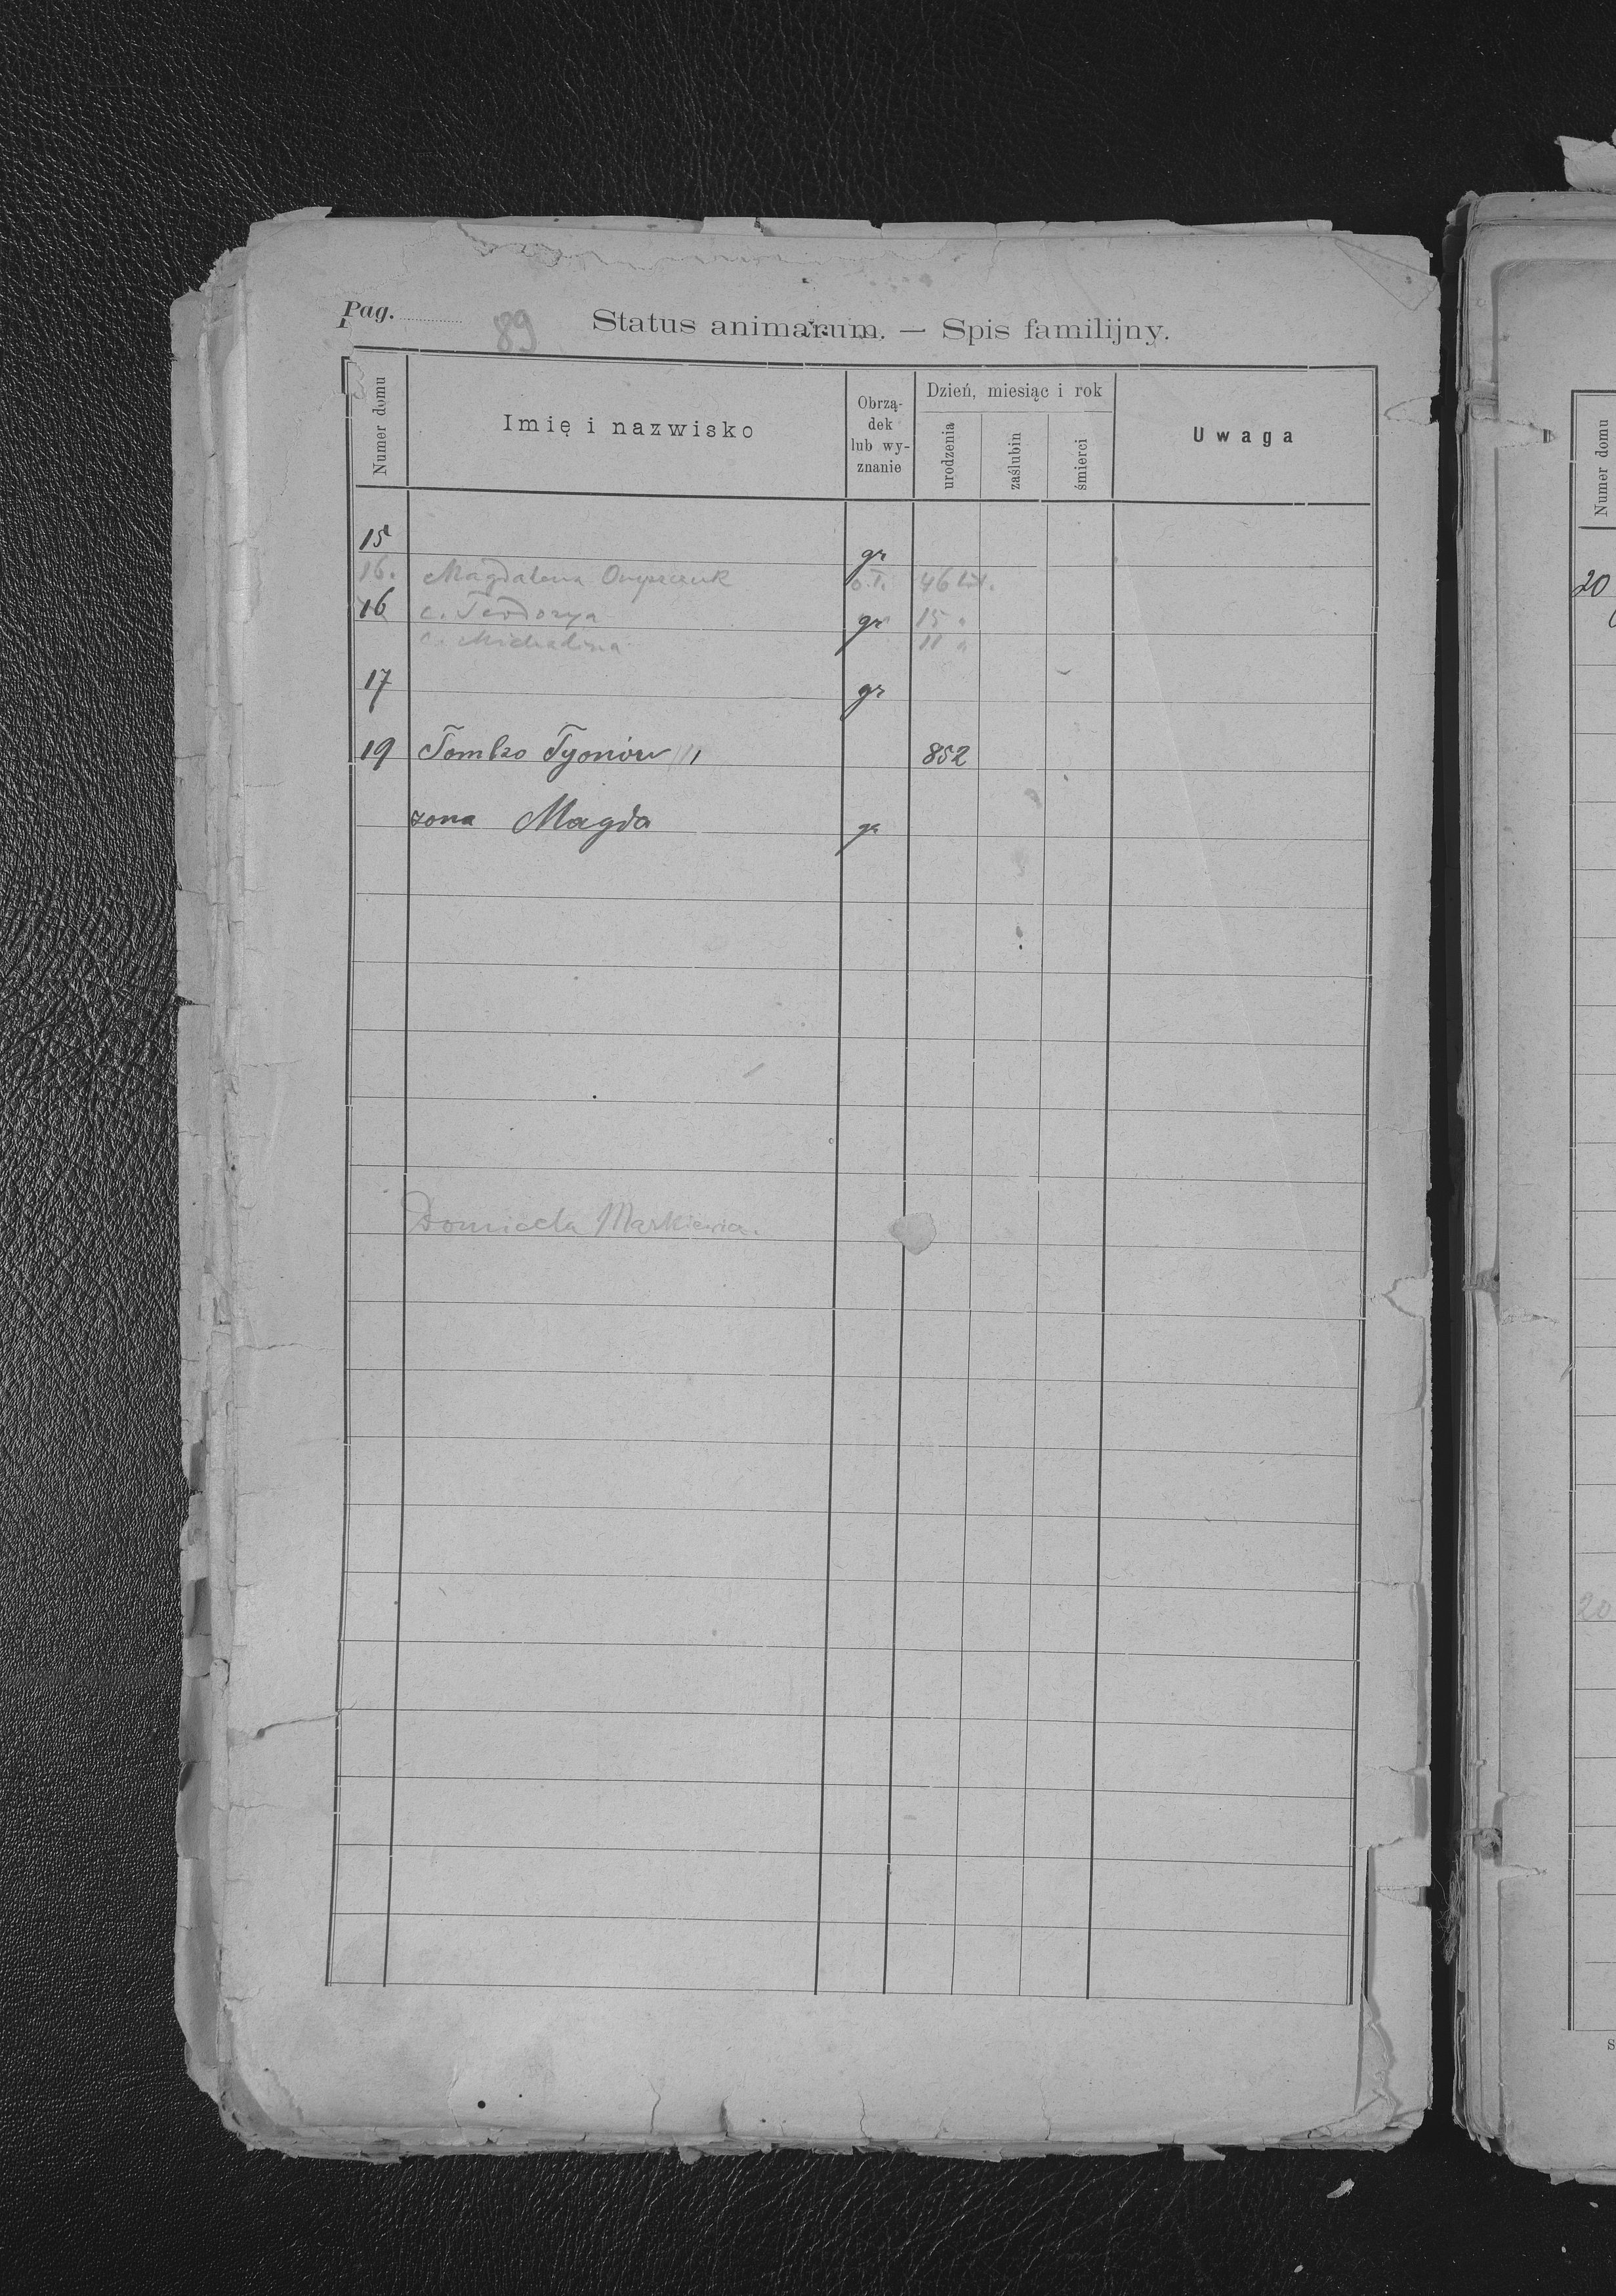 Pag. 89 Status animarum. — Spis familijny.
Numer domu
Imię i nazwisko
Obrzą-
dek
lub wy-
znanie
Dzień, miesiąc i rok
urodzenia
zaślubin
śmierci
Uwaga
15 gr
16. Magdalena o.ł. 46
16 c. Teodozya gr 15
c. Michalina 11
17 gr
19 Tomko Tyonów 852
zona Magda gr
Domicela Markiewicz.
Numer domu
20
20